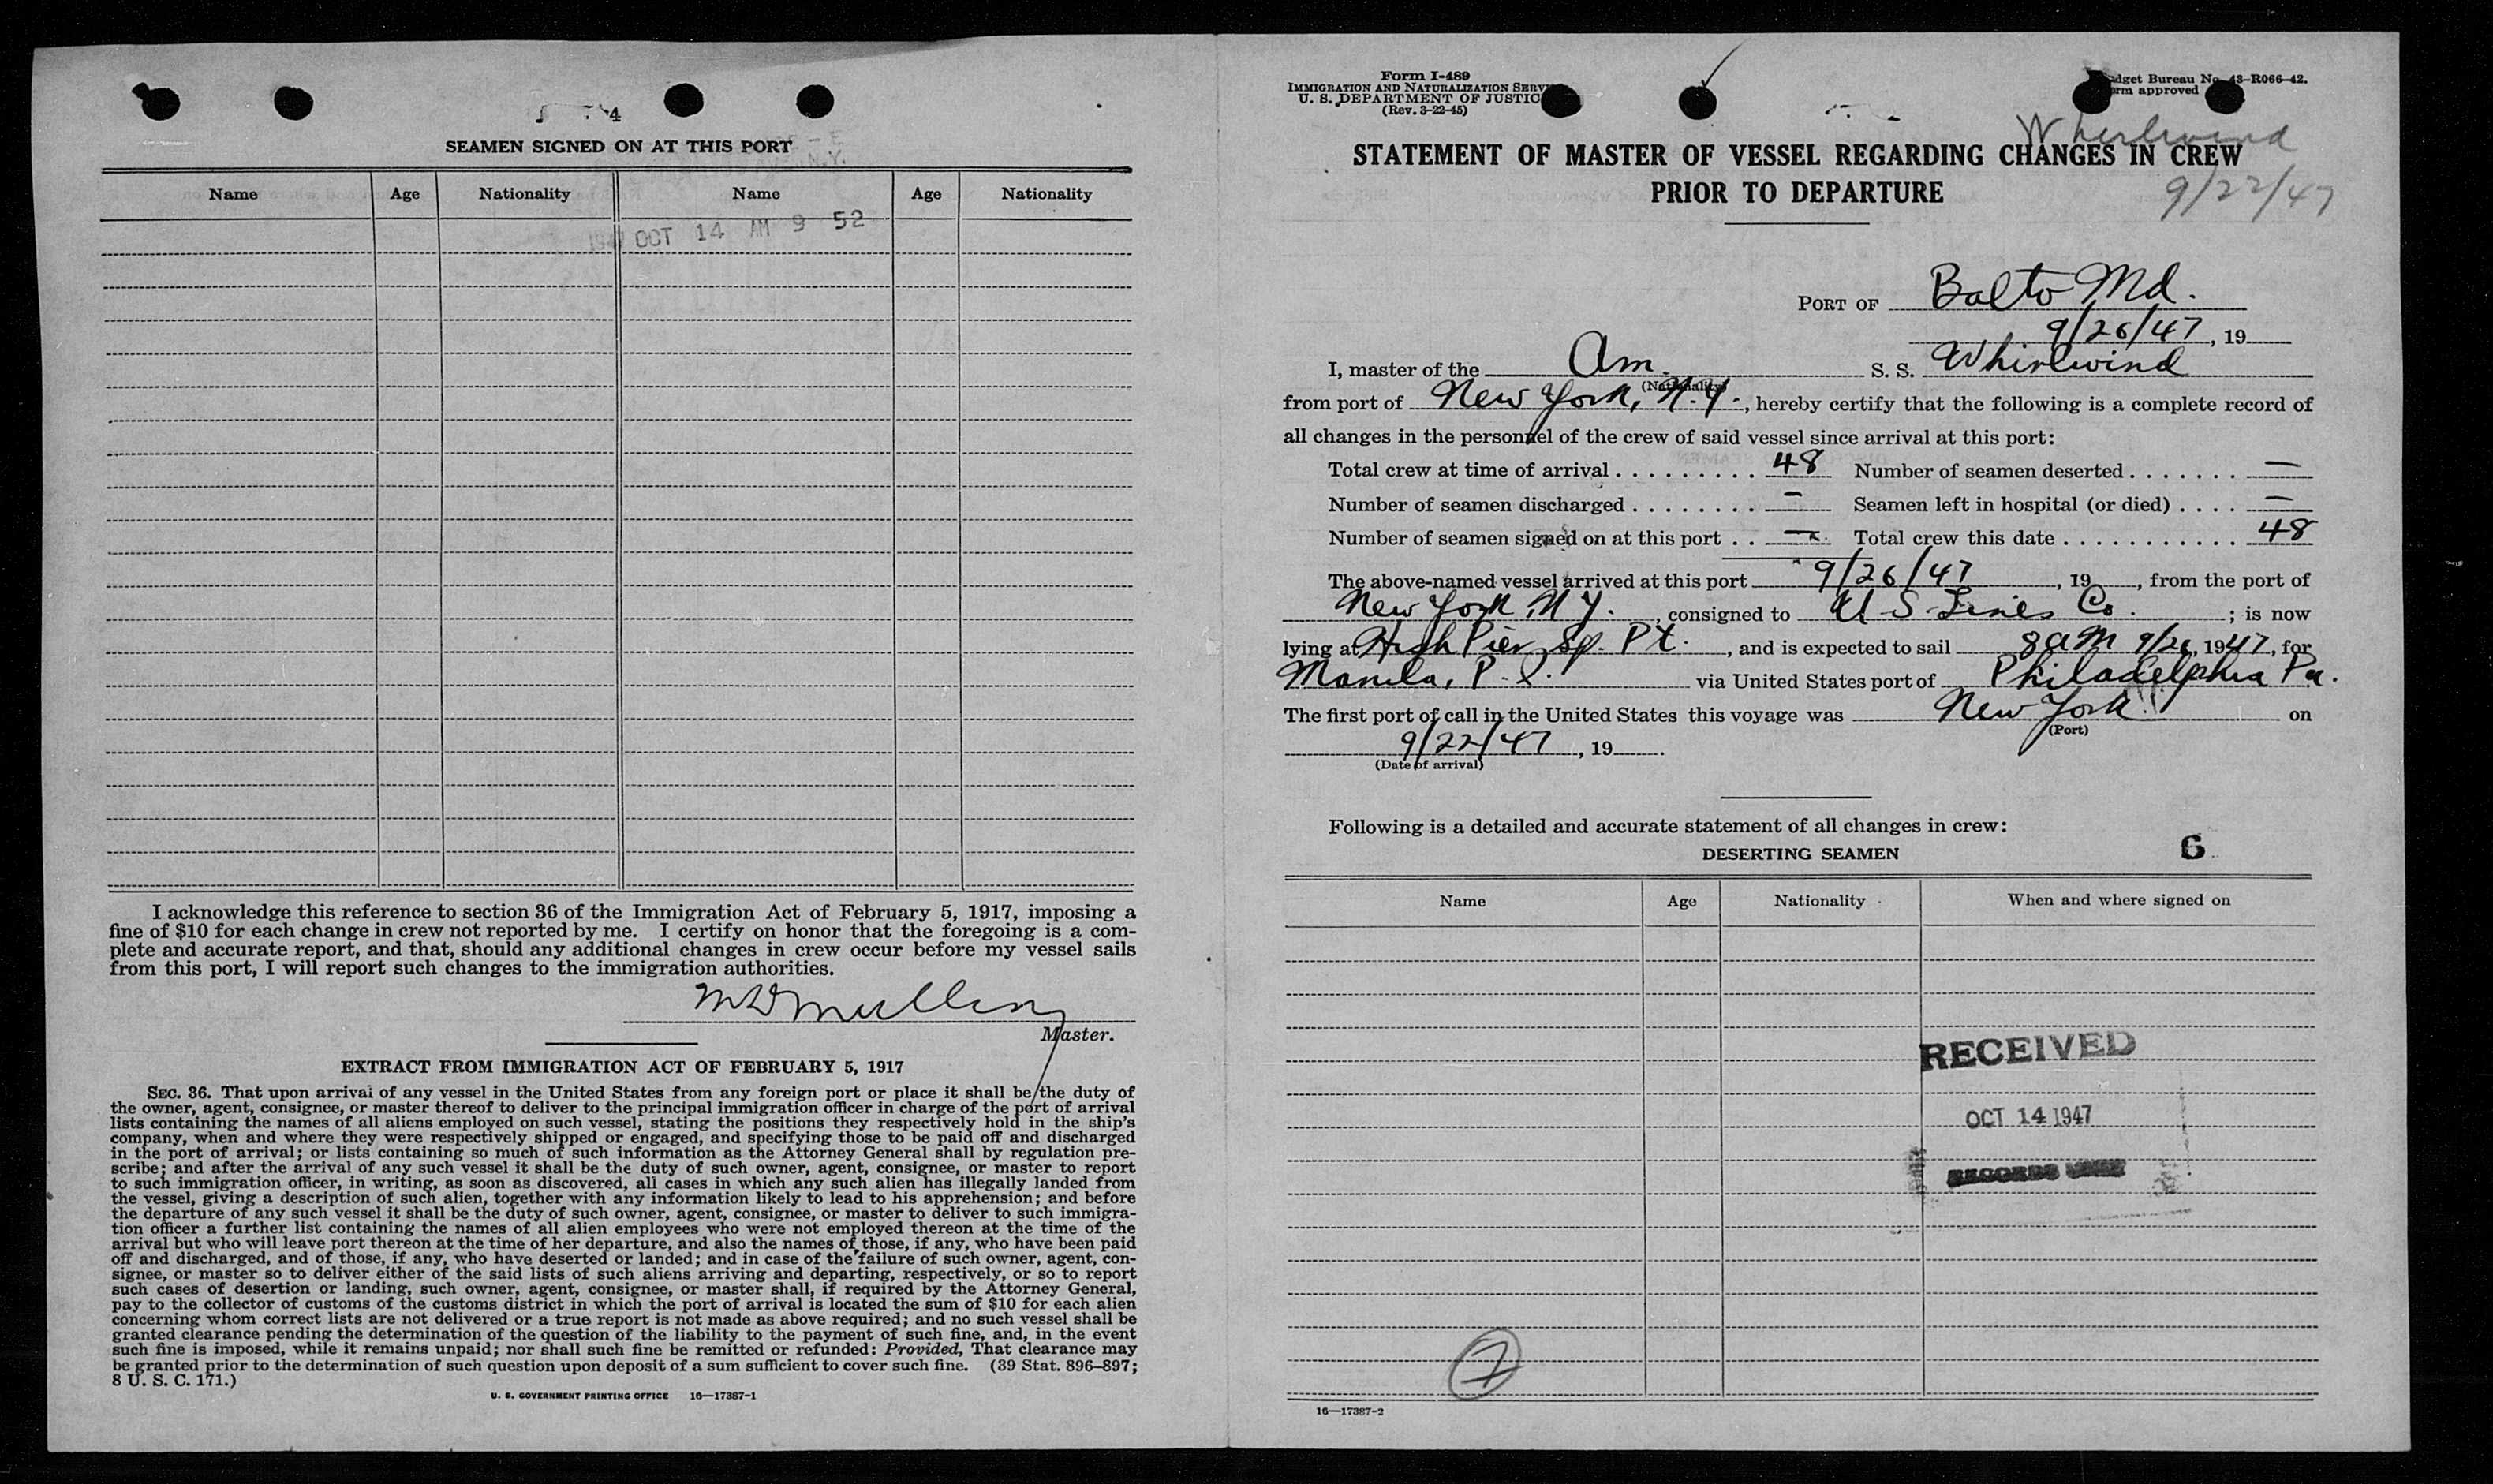 4
SEAMEN SIGNED ON AT THIS PORT
Name Age Nationality Name Age Nationality
OCT 14 AM 9 52
I acknowledge this reference to section 36 of the Immigration Act of February 5, 1917, imposing a
fine of $10 for each change in crew not reported by me. I certify on honor that the foregoing is a com-
plete and accurate report, and that, should any additional changes in crew occur before my vessel sails
from this port, I will report such changes to the immigration authorities.
Master.
EXTRACT FROM IMMIGRATION ACT OF FEBRUARY 5, 1917
SEC. 36. That upon arrival of any vessel in the United States from any foreign port or place it shall be the duty of
the owner, agent, consignee, or master thereof to deliver to the principal immigration officer in charge of the port of arrival
lists containing the names of all aliens employed on such vessel, stating the positions they respectively hold in the ship's
company, when and where they were respectively shipped or engaged, and specifying those to be paid off and discharged
in the port of arrival; or lists containing so much of such information as the Attorney General shall by regulation pre-
scribe; and after the arrival of any such vessel it shall be the duty of such owner, agent, consignee, or master to report
to such immigration officer, in writing, as soon as discovered, all cases in which any such alien has illegally landed from
the vessel, giving a description of such alien, together with any information likely to lead to his apprehension; and before
the departure of any such vessel it shall be the duty of such owner, agent, consignee, or master to deliver to such immigra-
tion officer a further list containing the names of all alien employees who were not employed thereon at the time of the
arrival but who will leave port thereon at the time of her departure, and also the names of those, if any, who have been paid
off and discharged, and of those, if any, who have deserted or landed; and in case of the failure of such owner, agent, con-
signee, or master so to deliver either of the said lists of such aliens arriving and departing, respectively, or so to report
such cases of desertion or landing, such owner, agent, consignee, or master shall, if required by the Attorney General,
pay to the collector of customs of the customs district in which the port of arrival is located the sum of $10 for each alien
concerning whom correct lists are not delivered or a true report is not made as above required; and no such vessel shall be
granted clearance pending the determination of the question of the liability to the payment of such fine, and, in the event
such fine is imposed, while it remains unpaid; nor shall such fine be remitted or refunded: Provided, That clearance may
be granted prior to the determination of such question upon deposit of a sum sufficient to cover such fine. (39 Stat. 896–897;
8 U. S. C. 171.)
U. S. GOVERNMENT PRINTING OFFICE 16—17387-1
Form I-489
IMMIGRATION AND NATURALIZATION SERV
U. S. DEPARTMENT OF JUSTIC
(Rev. 3-22-45)
dget Bureau No. 43-R066-42.
rm approved
Whirlwind
STATEMENT OF MASTER OF VESSEL REGARDING CHANGES IN CREW
PRIOR TO DEPARTURE
9/22/47
PORT OF Balto Md.
9/26/47, 19
I, master of the Am. S. S. Whirlwind
(Nationality)
from port of New York, N.Y., hereby certify that the following is a complete record of
all changes in the personnel of the crew of said vessel since arrival at this port:
Total crew at time of arrival . . . . . . . . . 48 Number of seamen deserted . . . . . . . —
Number of seamen discharged . . . . . . . . — Seamen left in hospital (or died) . . . . —
Number of seamen signed on at this port . . — Total crew this date . . . . . . . . . . . 48
The above-named vessel arrived at this port 9/26/47, 19, from the port of
New York, N Y., consigned to U S Lines Co.; is now
lying at High Pier, Sp. Pt., and is expected to sail 8 AM 9/26, 1947, for
Manila, P. I. via United States port of Philadelphia Pa.
The first port of call in the United States this voyage was New York on
(Port)
9/22/47, 19.
(Date of arrival)
Following is a detailed and accurate statement of all changes in crew:
DESERTING SEAMEN 6
Name Age Nationality When and where signed on
RECEIVED
OCT 14 1947
RECORDS
7
16—17387-2